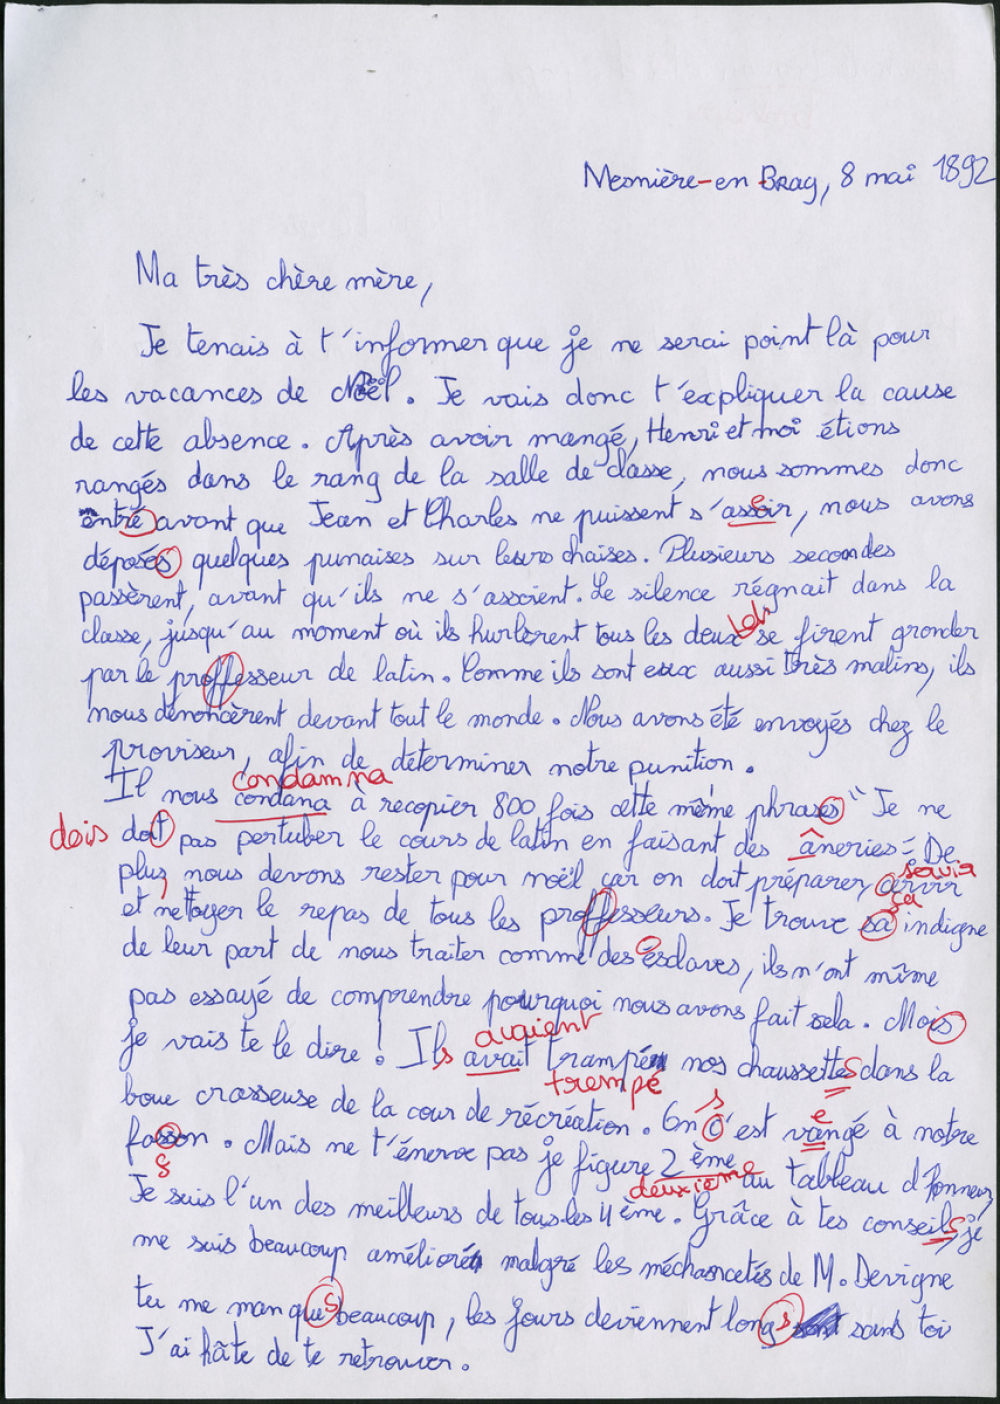 Mesnière-en-Bray, 8 mai 1892
Ma très chère mère,
Je tenais à t'informer que je ne serai point là pour
les vacances de Noël. Je vais donc t'éxpliquer la cause
de cette absence. Après avoir mangé, Henri et moi étions
rangés dans le rang de la salle de classe, nous sommes donc
entré avant que Jean et Charles ne puissent s'assoir, nous avons
e
déposés quelques punaises sur leurs chaises. Plusieurs secondes
passèrent, avant qu'ils ne s'assoient. Le silence régnait dans la
classe, jusqu'au moment où ils hurlèrent tous les deux se firent gronder
par le proffesseur de latin. Comme ils sont eux aussi très malins, ils
nous dénoncèrent devant tout le monde. Nous avons été envoyés chez le
proviseur, afin de déterminer notre punition.
condamna
Il nous condana à recopier 800 fois cette même phrases " Je ne
dois doit pas pertuber le cours de latin en faisant des âneries = De
plus, nous devons rester pour noël car on doit préparer, servir
servir
et nettoyer le repas de tous les proffesseurs. Je trouve sa indigne
ça
de leur part de nous traiter comme des ésclaves, ils n'ont même
e
pas essayé de comprendre pourquoi nous avons fait sela. Mois
je vais te le dire ! Ils avait trampé nos chaussettes dans la
avaient
trempé
boue crasseuse de la cour de récréation. On c'est vangé à notre
s
e
fasson. Mais ne t'énerve pas je figure 2ème au tableau d'honneur,
ç
deuxième
Je suis l'un des meilleurs de tous les 4ème. Grâce à tes conseils, je
me suis beaucoup amélioré malgré les méchancetés de M. Devigne
tu me manques beaucoup, les jours deviennent longs sans toi
J'ai hâte de te retrouver.